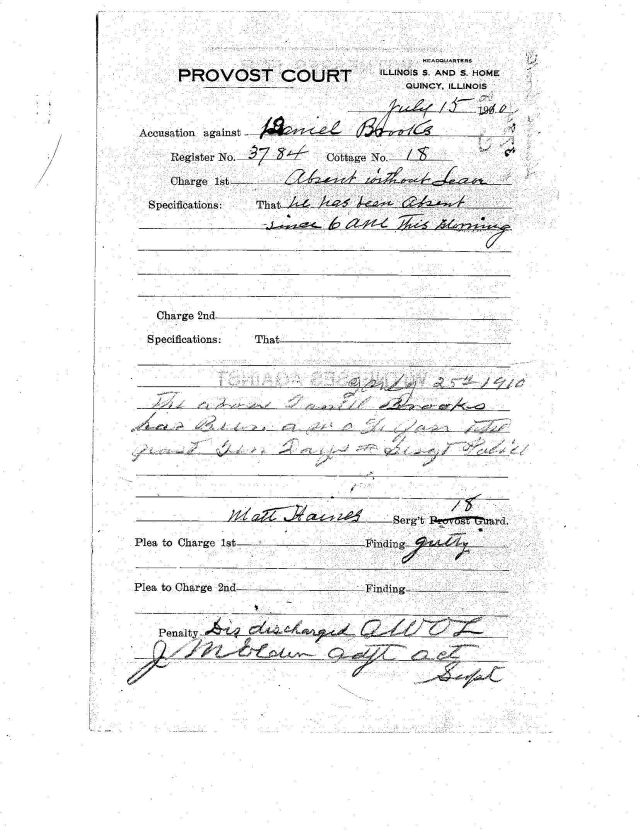 HEADQUARTERS
PROVOST COURT ILLINOIS S. AND S. HOME
QUINCY, ILLINOIS
July 15 1910
Accusation against Daniel Brooks
Register No. 3784 Cottage No. 18
Charge 1st Absent without Leave
Specifications: That he has been Absent
since 6 AM This Morning
Charge 2nd
Specifications: That
WITNESSES AGAINST
July 25th 1910
The above Daniel Brooks
has Been
past Ten Days
18
Matt Haines Serg't Provost Guard.
Plea to Charge 1st Finding guilty
Plea to Charge 2nd Finding
Penalty Dis discharged AWOL
J M Adjt act
Supt